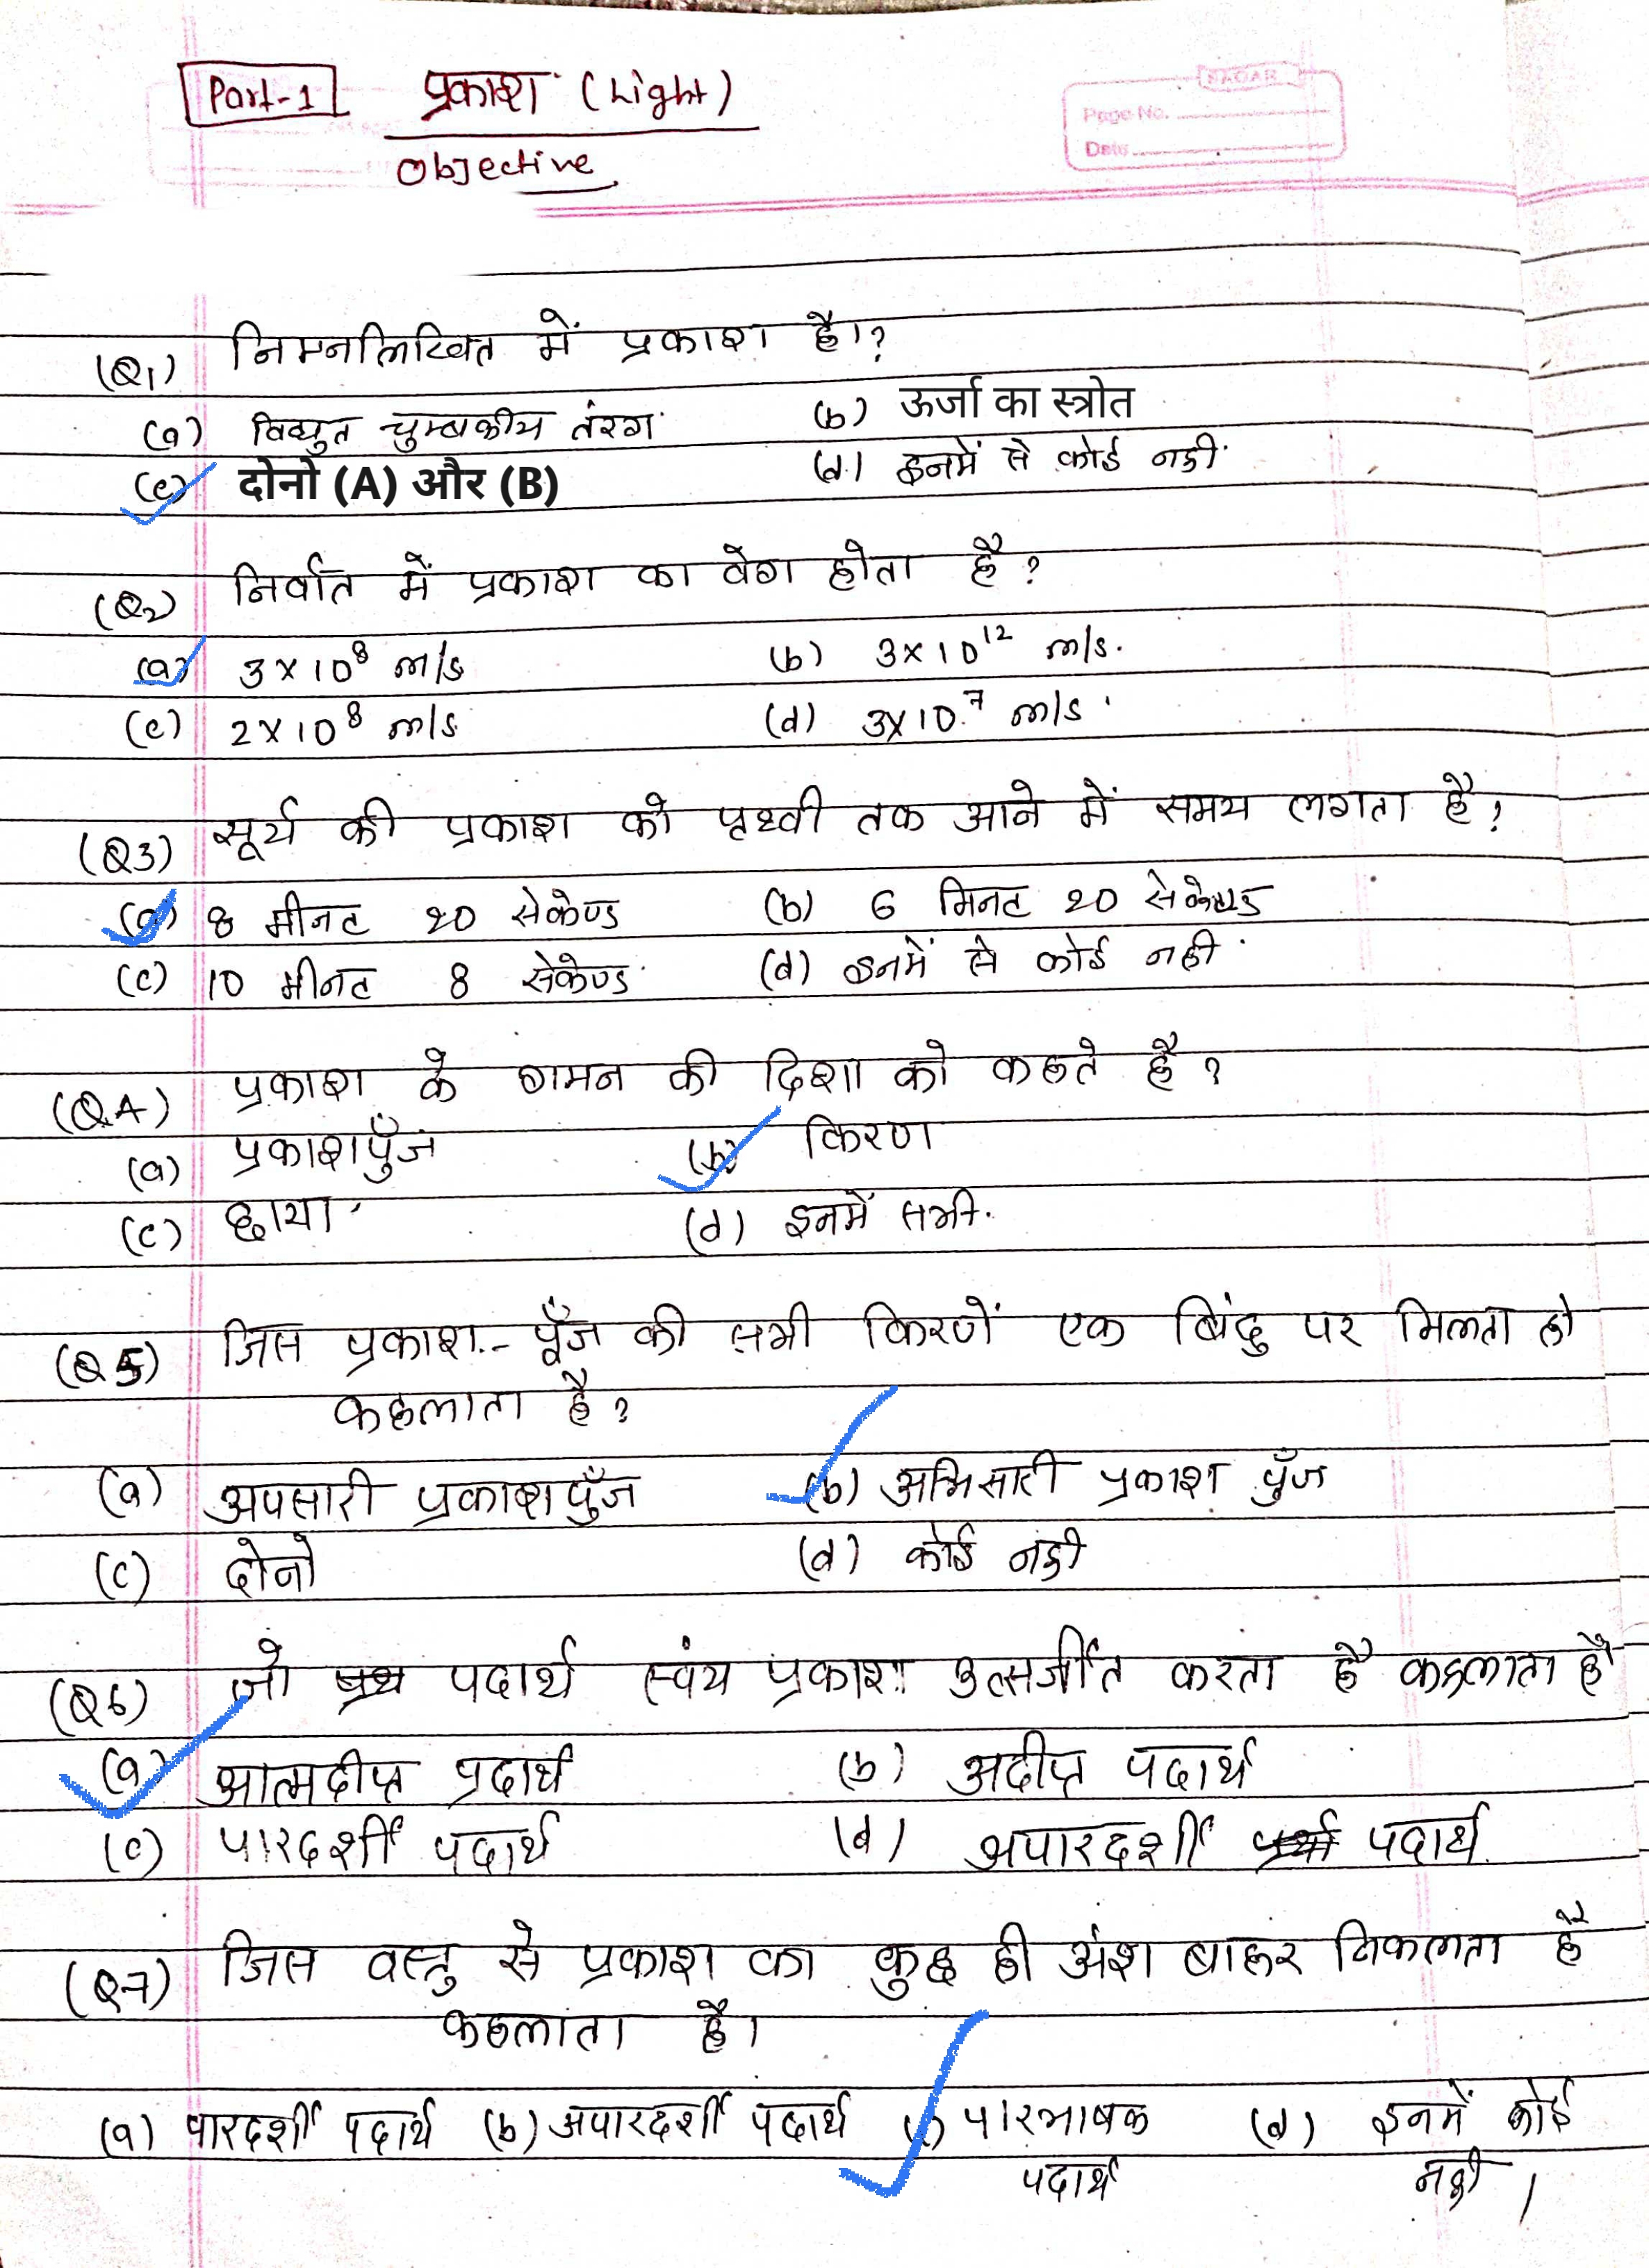 Part-1 प्रकाश (Light)
Objective
SAGAR
Page No.
Date
(Q1) निम्नलिखित में प्रकाश है।?
(a) विद्युत चुम्बकीय तंरग (b) ऊर्जा का स्त्रोत
(c) दोनो (A) और (B) (d) इनमें से कोई नही.
(Q2) निर्वात में प्रकाश का वेग होता है?
(a) 3×10⁸ m/s (b) 3×10¹² m/s.
(c) 2×10⁸ m/s (d) 3×10⁷ m/s
(Q3) सूर्य की प्रकाश को पृथ्वी तक आने में समय लगता है?
(a) 8 मीनट 20 सेकेण्ड (b) 6 मिनट 20 सेकेण्ड
(c) 10 मीनट 8 सेकेण्ड (d) इनमें से कोई नही
(Q4) प्रकाश के गमन की दिशा को कहते है?
(a) प्रकाशपुँज (b) किरण
(c) छाया (d) इनमें सभी.
(Q5) जिस प्रकाश-पूँज की सभी किरणें एक बिंदु पर मिलता हो
कहलाता है?
(a) अपसारी प्रकाशपुँज (b) अभिसारी प्रकाश पुँज
(c) दोनो (d) कोई नही
(Q6) जो पदार्थ स्वंय प्रकाश उत्सर्जीत करता है कहलाता है
(a) आत्मदीप्त प्रदार्थ (b) अदीप्त पदार्थ
(c) पारदर्शी पदार्थ (d) अपारदर्शी पदार्थ
(Q7) जिस वस्तु से प्रकाश का कुछ ही अंश बाहर निकलता है
कहलाता है।
(a) पारदर्शी पदार्थ (b) अपारदर्शी पदार्थ (c) पारभाषक (d) इनमें कोई
पदार्थ नही।